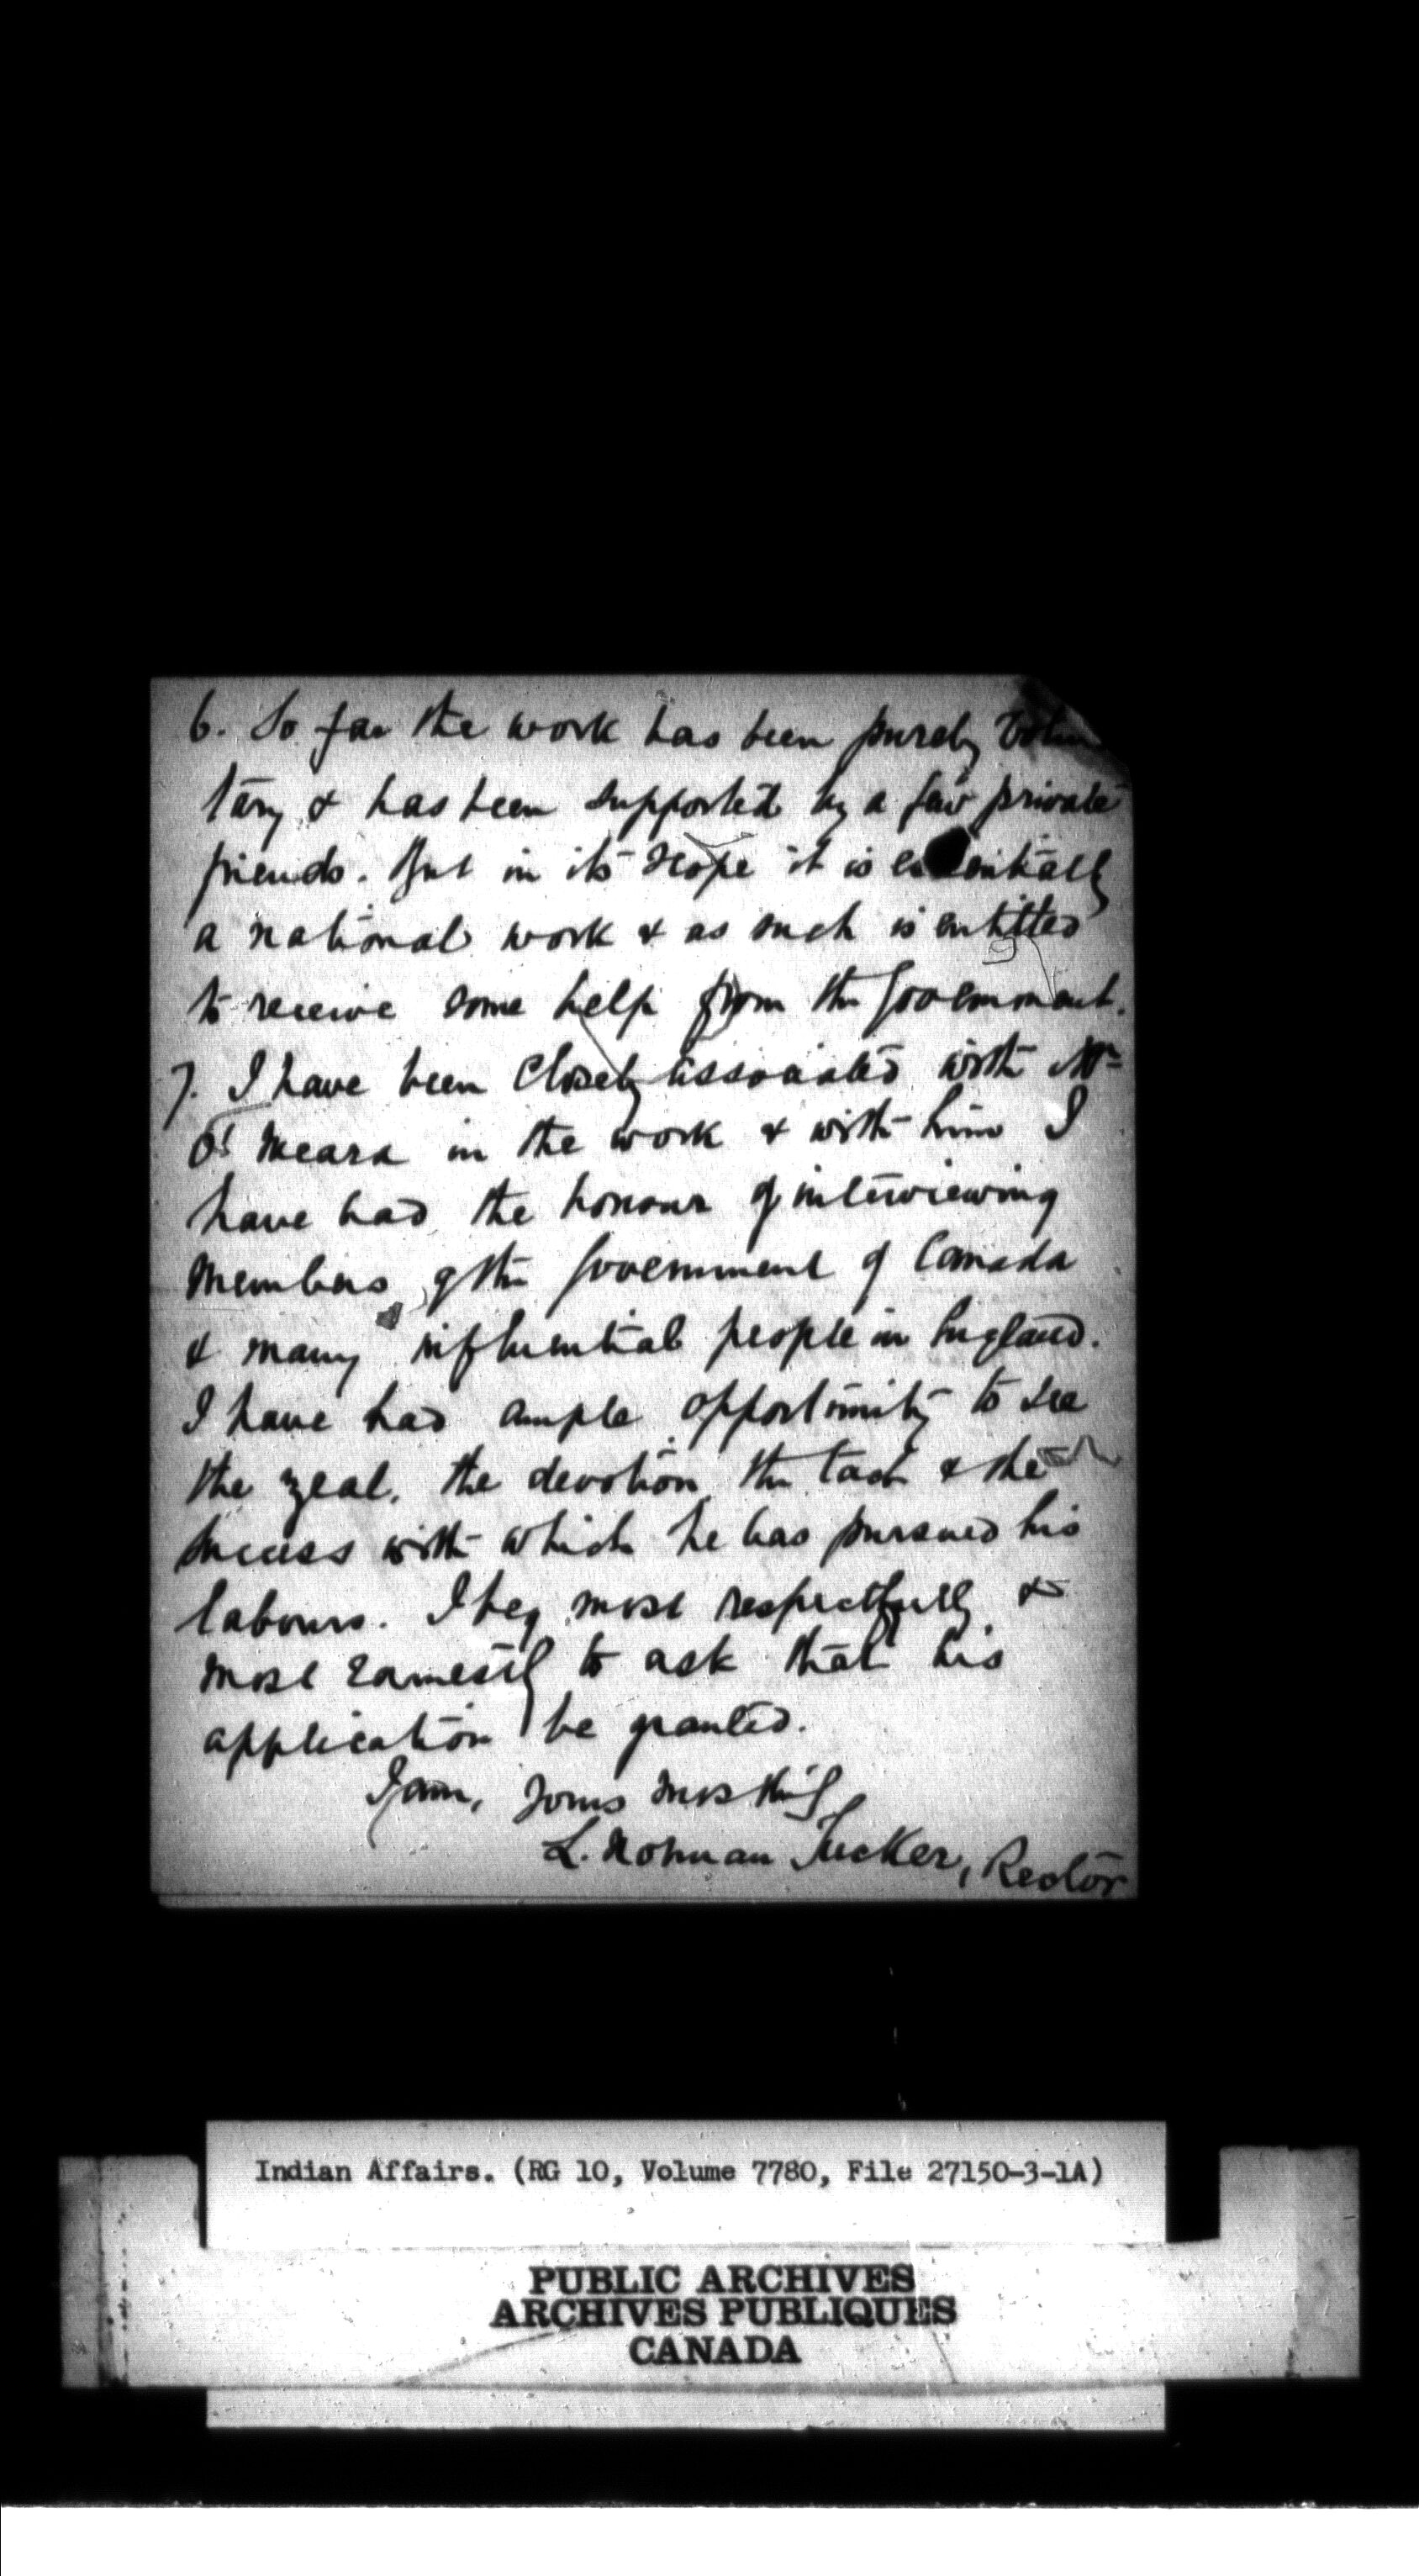 6. So far the work has been purely volun
tary & has been supported by a few private
friends. But in its scope it is essentially
a national work & as such is entitled
to receive some help from the Government.
7. I have been closely associated with Mr
O'Meara in the work & with him I
have had the honour of interviewing
Members of the Government of Canada
& many influential people in England.
I have had ample opportunity to see
the zeal, the devotion, the tact & the
success with which he has pursued his
labours. I beg most respectfully &
most earnestly to ask that his
application be granted.
I am, Yours most
L. Norman Tucker, Rector
Indian Affairs. (RG 10, Volume 7780, File 27150-3-1A)
PUBLIC ARCHIVES
ARCHIVES PUBLIQUES
CANADA